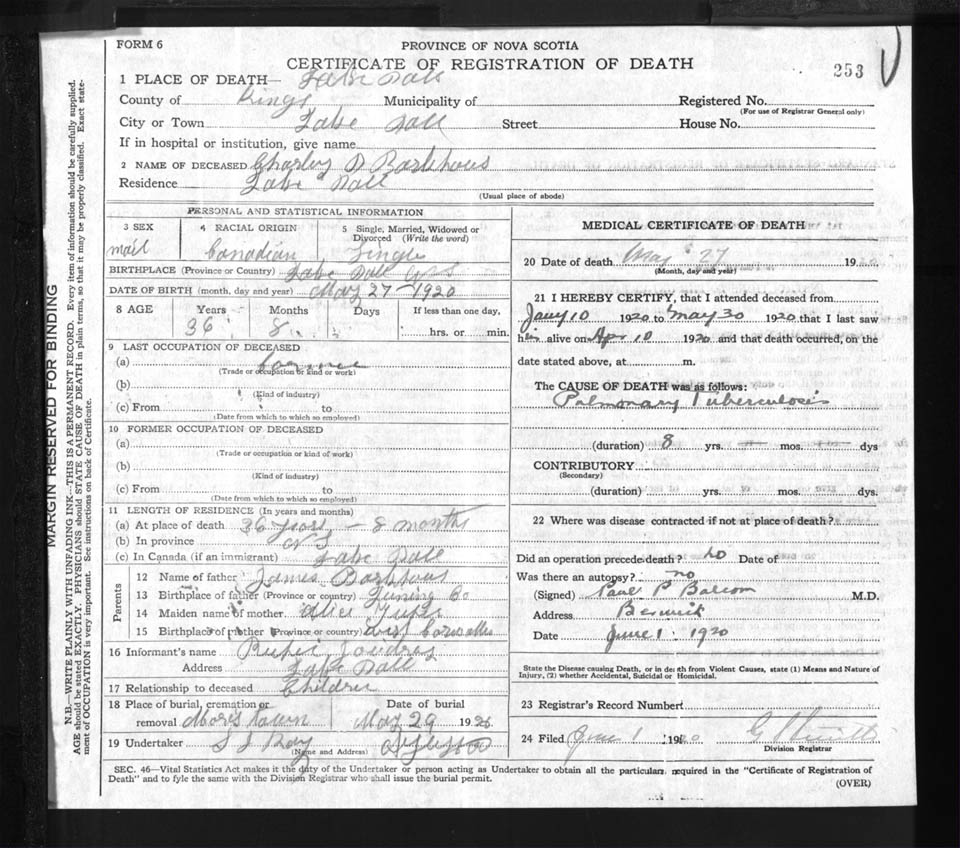 FORM 6
PROVINCE OF NOVA SCOTIA
CERTIFICATE OF REGISTRATION OF DEATH
253
1 PLACE OF DEATH— Lake Pall
County of Kings Municipality of Registered No.
(For use of Registrar General only)
City or Town Lake Pall Street House No.
If in hospital or institution, give name
2 NAME OF DECEASED Charley D Barkhous
Residence Lake Pall
(Usual place of abode)
PERSONAL AND STATISTICAL INFORMATION
3 SEX
mail
4 RACIAL ORIGIN
Canadian
5 Single, Married, Widowed or Divorced (Write the word)
Single
BIRTHPLACE (Province or Country) Lake Pall
DATE OF BIRTH (month, day and year) May 27—1920
8 AGE Years Months Days If less than one day,
36 8 hrs. or min.
9 LAST OCCUPATION OF DECEASED
(a)
(Trade or occupation or kind or work)
(b)
(Kind of industry)
(c) From to
(Date from which to which so employed)
10 FORMER OCCUPATION OF DECEASED
(a)
(Trade or occupation or kind of work)
(b)
(Kind of industry)
(c) From to
(Date from which to which so employed)
11 LENGTH OF RESIDENCE (In years and months)
(a) At place of death 36 years — 8 months
(b) In province N S
(c) In Canada (if an immigrant) Lake Pall
Parents
12 Name of father James Barkhous
13 Birthplace of father (Province or country) Luning Co
14 Maiden name of mother Alice
15 Birthplace of mother (Province or country) West Cornwallis
16 Informant's name
Address Lake Pall
17 Relationship to deceased Children
18 Place of burial, cremation or removal Morristown
Date of burial
May 29 192
19 Undertaker S J Ray
(Name and Address)
MEDICAL CERTIFICATE OF DEATH
20 Date of death May 27 19
(Month, day and year)
21 I HEREBY CERTIFY, that I attended deceased from
Jany 10 1920 to May 30 1920 that I last saw
him alive on Apr 10 1920 and that death occurred, on the
date stated above, at m.
The CAUSE OF DEATH was as follows:
Pulmonary Tuberculosis
(duration) 8 yrs. — mos. — dys
CONTRIBUTORY
(Secondary)
(duration) yrs. mos. dys.
22 Where was disease contracted if not at place of death?
Did an operation precede death? No Date of
Was there an autopsy? no
(Signed) Paul P Balcom M.D.
Address Berwick
Date June 1. 1920
State the Disease causing Death, or in death from Violent Causes, state (1) Means and Nature of
Injury, (2) whether Accidental, Suicidal or Homicidal.
23 Registrar's Record Number
24 Filed June 1 1920
Division Registrar
SEC. 46—Vital Statistics Act makes it the duty of the Undertaker or person acting as Undertaker to obtain all the particulars required in the "Certificate of Registration of
Death" and to fyle the same with the Division Registrar who shall issue the burial permit.
(OVER)
MARGIN RESERVED FOR BINDING
N.B.—WRITE PLAINLY WITH UNFADING INK—THIS IS A PERMANENT RECORD. Every item of information should be carefully supplied.
AGE should be stated EXACTLY. PHYSICIANS should STATE CAUSE OF DEATH in plain terms, so that it may be properly classified. Exact state-
ment of OCCUPATION is very important. See instructions on back of Certificate.